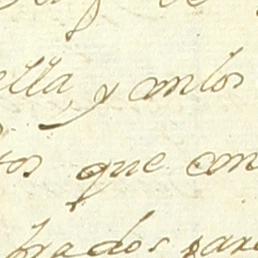 ella, y en los
tos que con
brados para